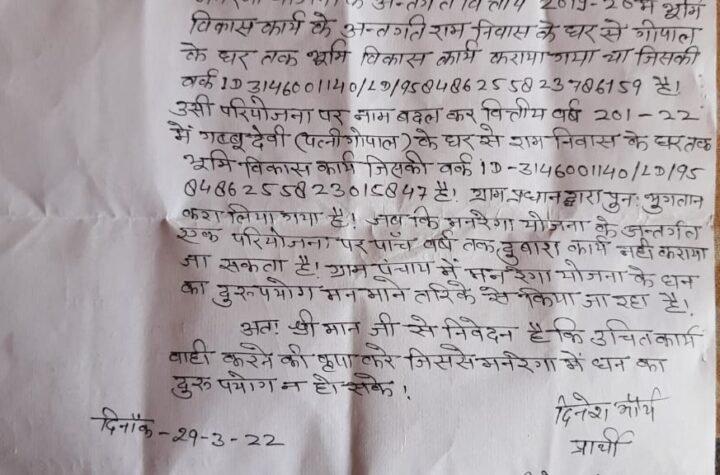 के अन्तर्गत वित्तीय 2019-20 में भूमि
विकास कार्य के अन्तर्गत राम निवास के घर से गोपाल
के घर तक भूमि विकास कार्य कराया गया था जिसकी
वर्क ID 3146001140/LD/958486255823786159 है!
उसी परियोजना पर नाम बदल कर वित्तीय वर्ष 201-22
में गब्बू देवी (पत्नी गोपाल) के घर से राम निवास के घर तक
भूमि विकास कार्य जिसकी वर्क ID-3146001140/LD/95
8486255823015847 है! ग्राम प्रधान द्वारा पुनः भुगतान
करा लिया गया है! जब कि मनरेगा योजना के अन्तर्गत
एक परियोजना पर पाँच वर्ष तक दुबारा कार्य नही कराया
जा सकता है! ग्राम पंचाय में मनरेगा योजना के धन
का दुरुपयोग मन माने तरिके से किया जा रहा है!
अतः श्री मान जी से निवेदन है कि उचित कार्य
वाही करने की कृपा करे जिससे मनरेगा में धन का
दुरुपयोग न हो सके!
दिनेश मौर्य
दिनाँक-29-3-22
प्रार्थी